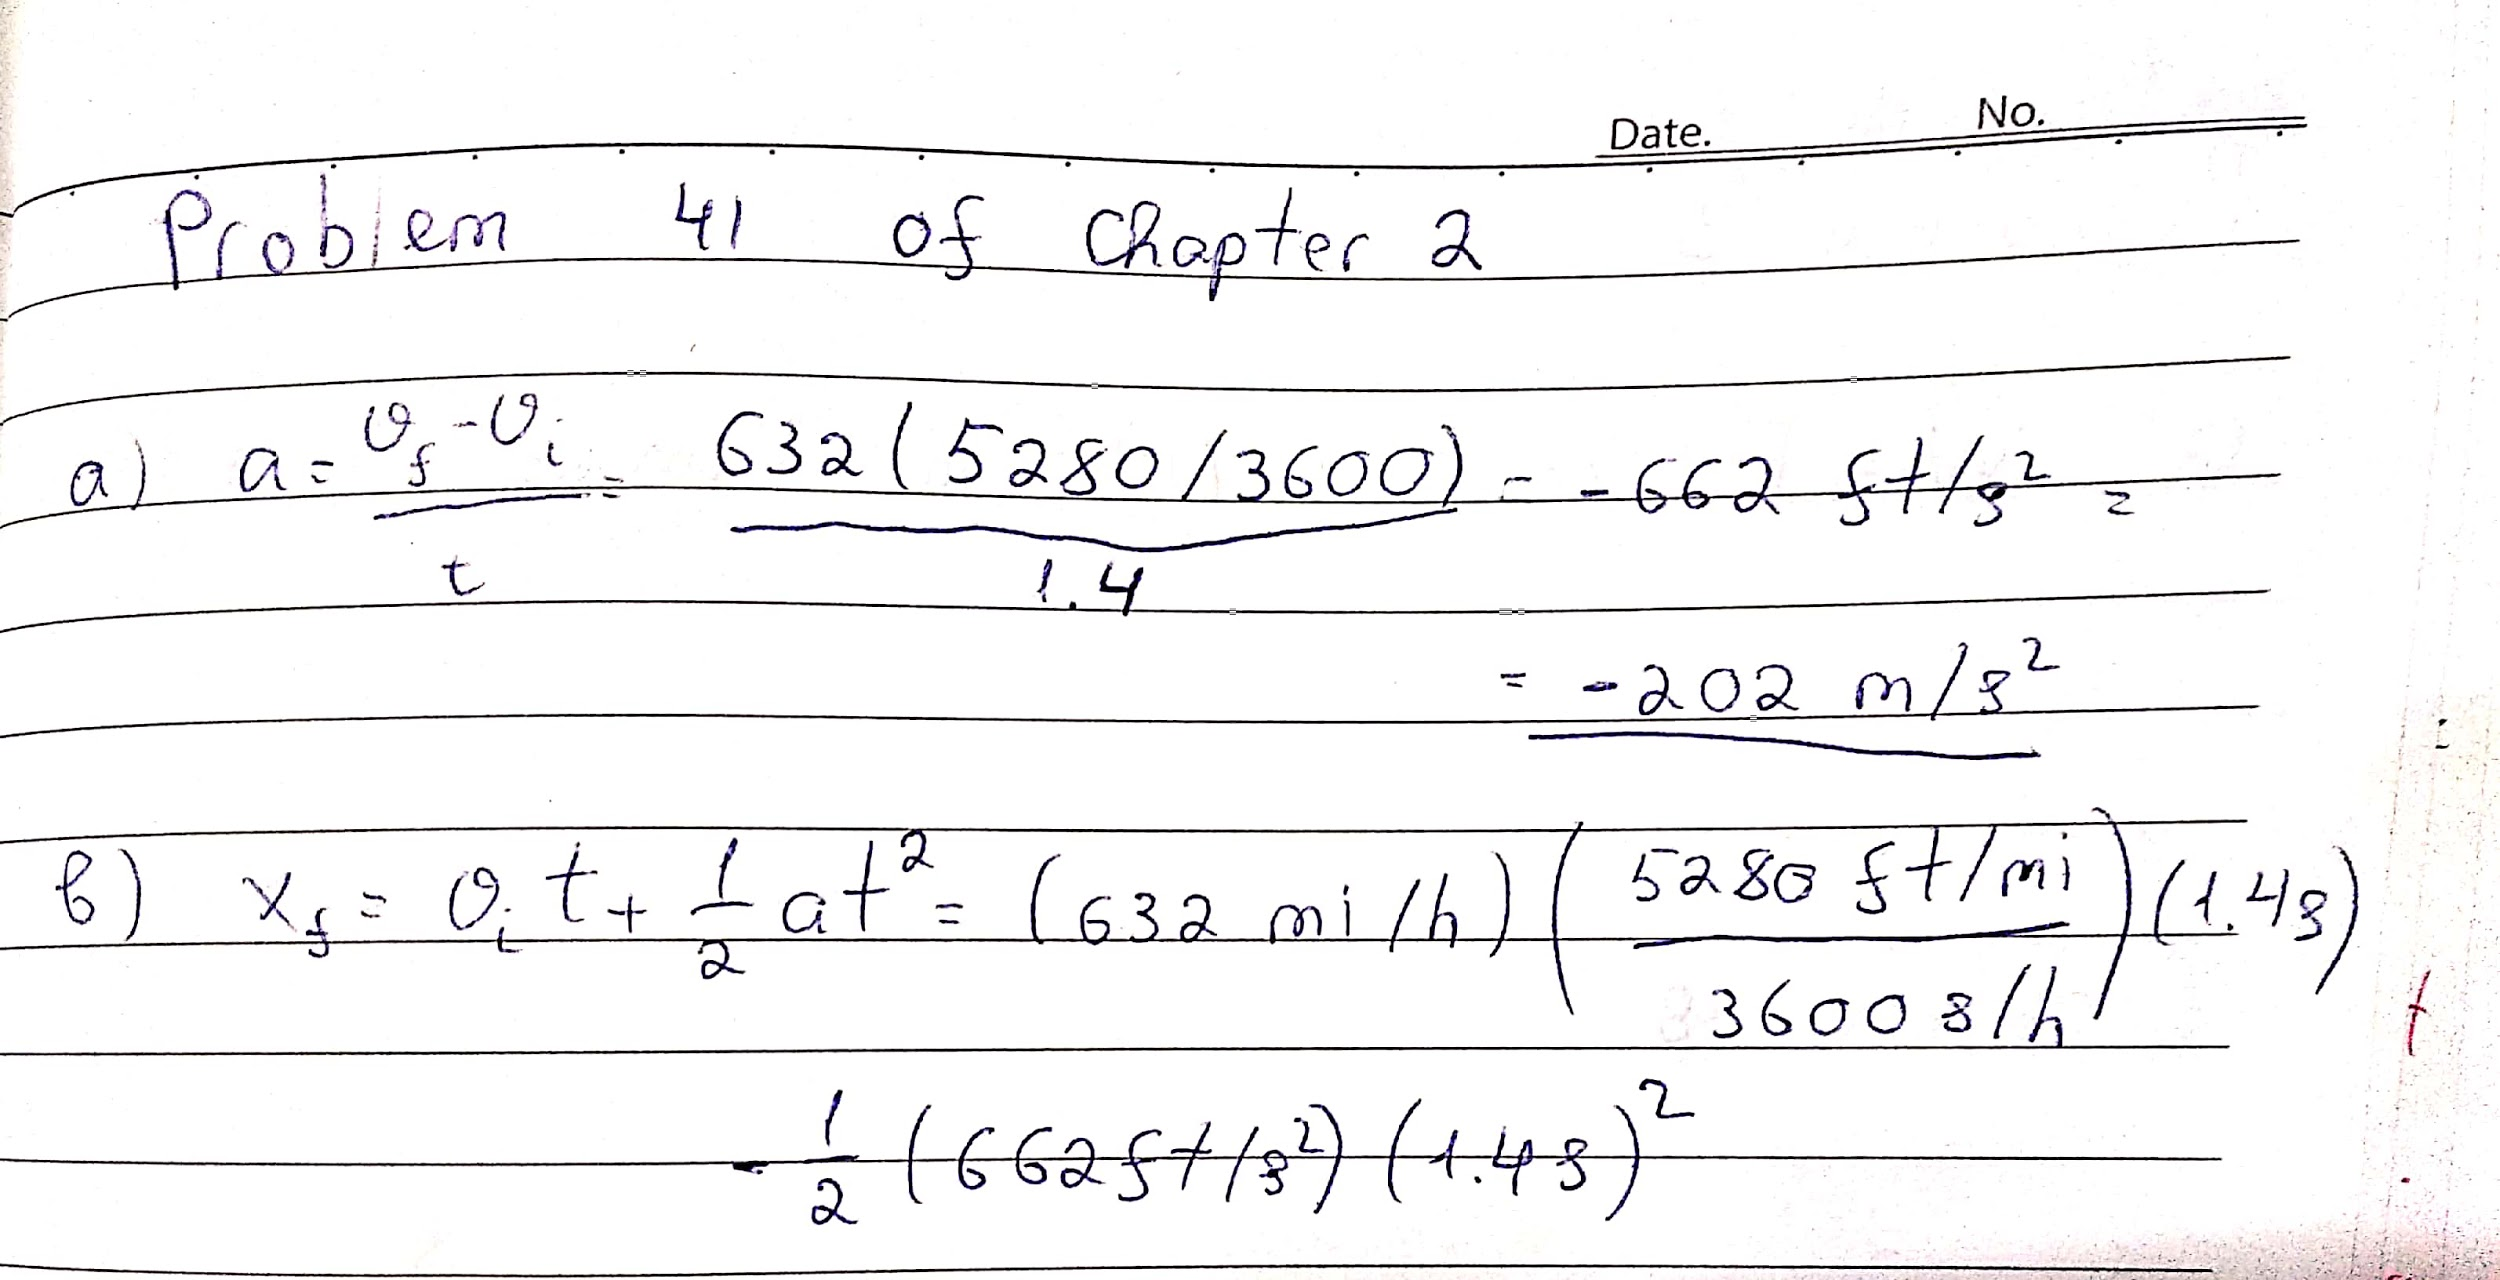 Date. No.
Problem 41 of Chapter 2
a) a = (v_f - v_i)/t = 632(5280/3600)/1.4 = -662 ft/s² =
= -202 m/s²
b) x_f = v_i t + 1/2 at² = (632 mi/h)(5280 ft/mi / 3600 s/h)(1.4s)
- 1/2 (662 ft/s²)(1.4s)²